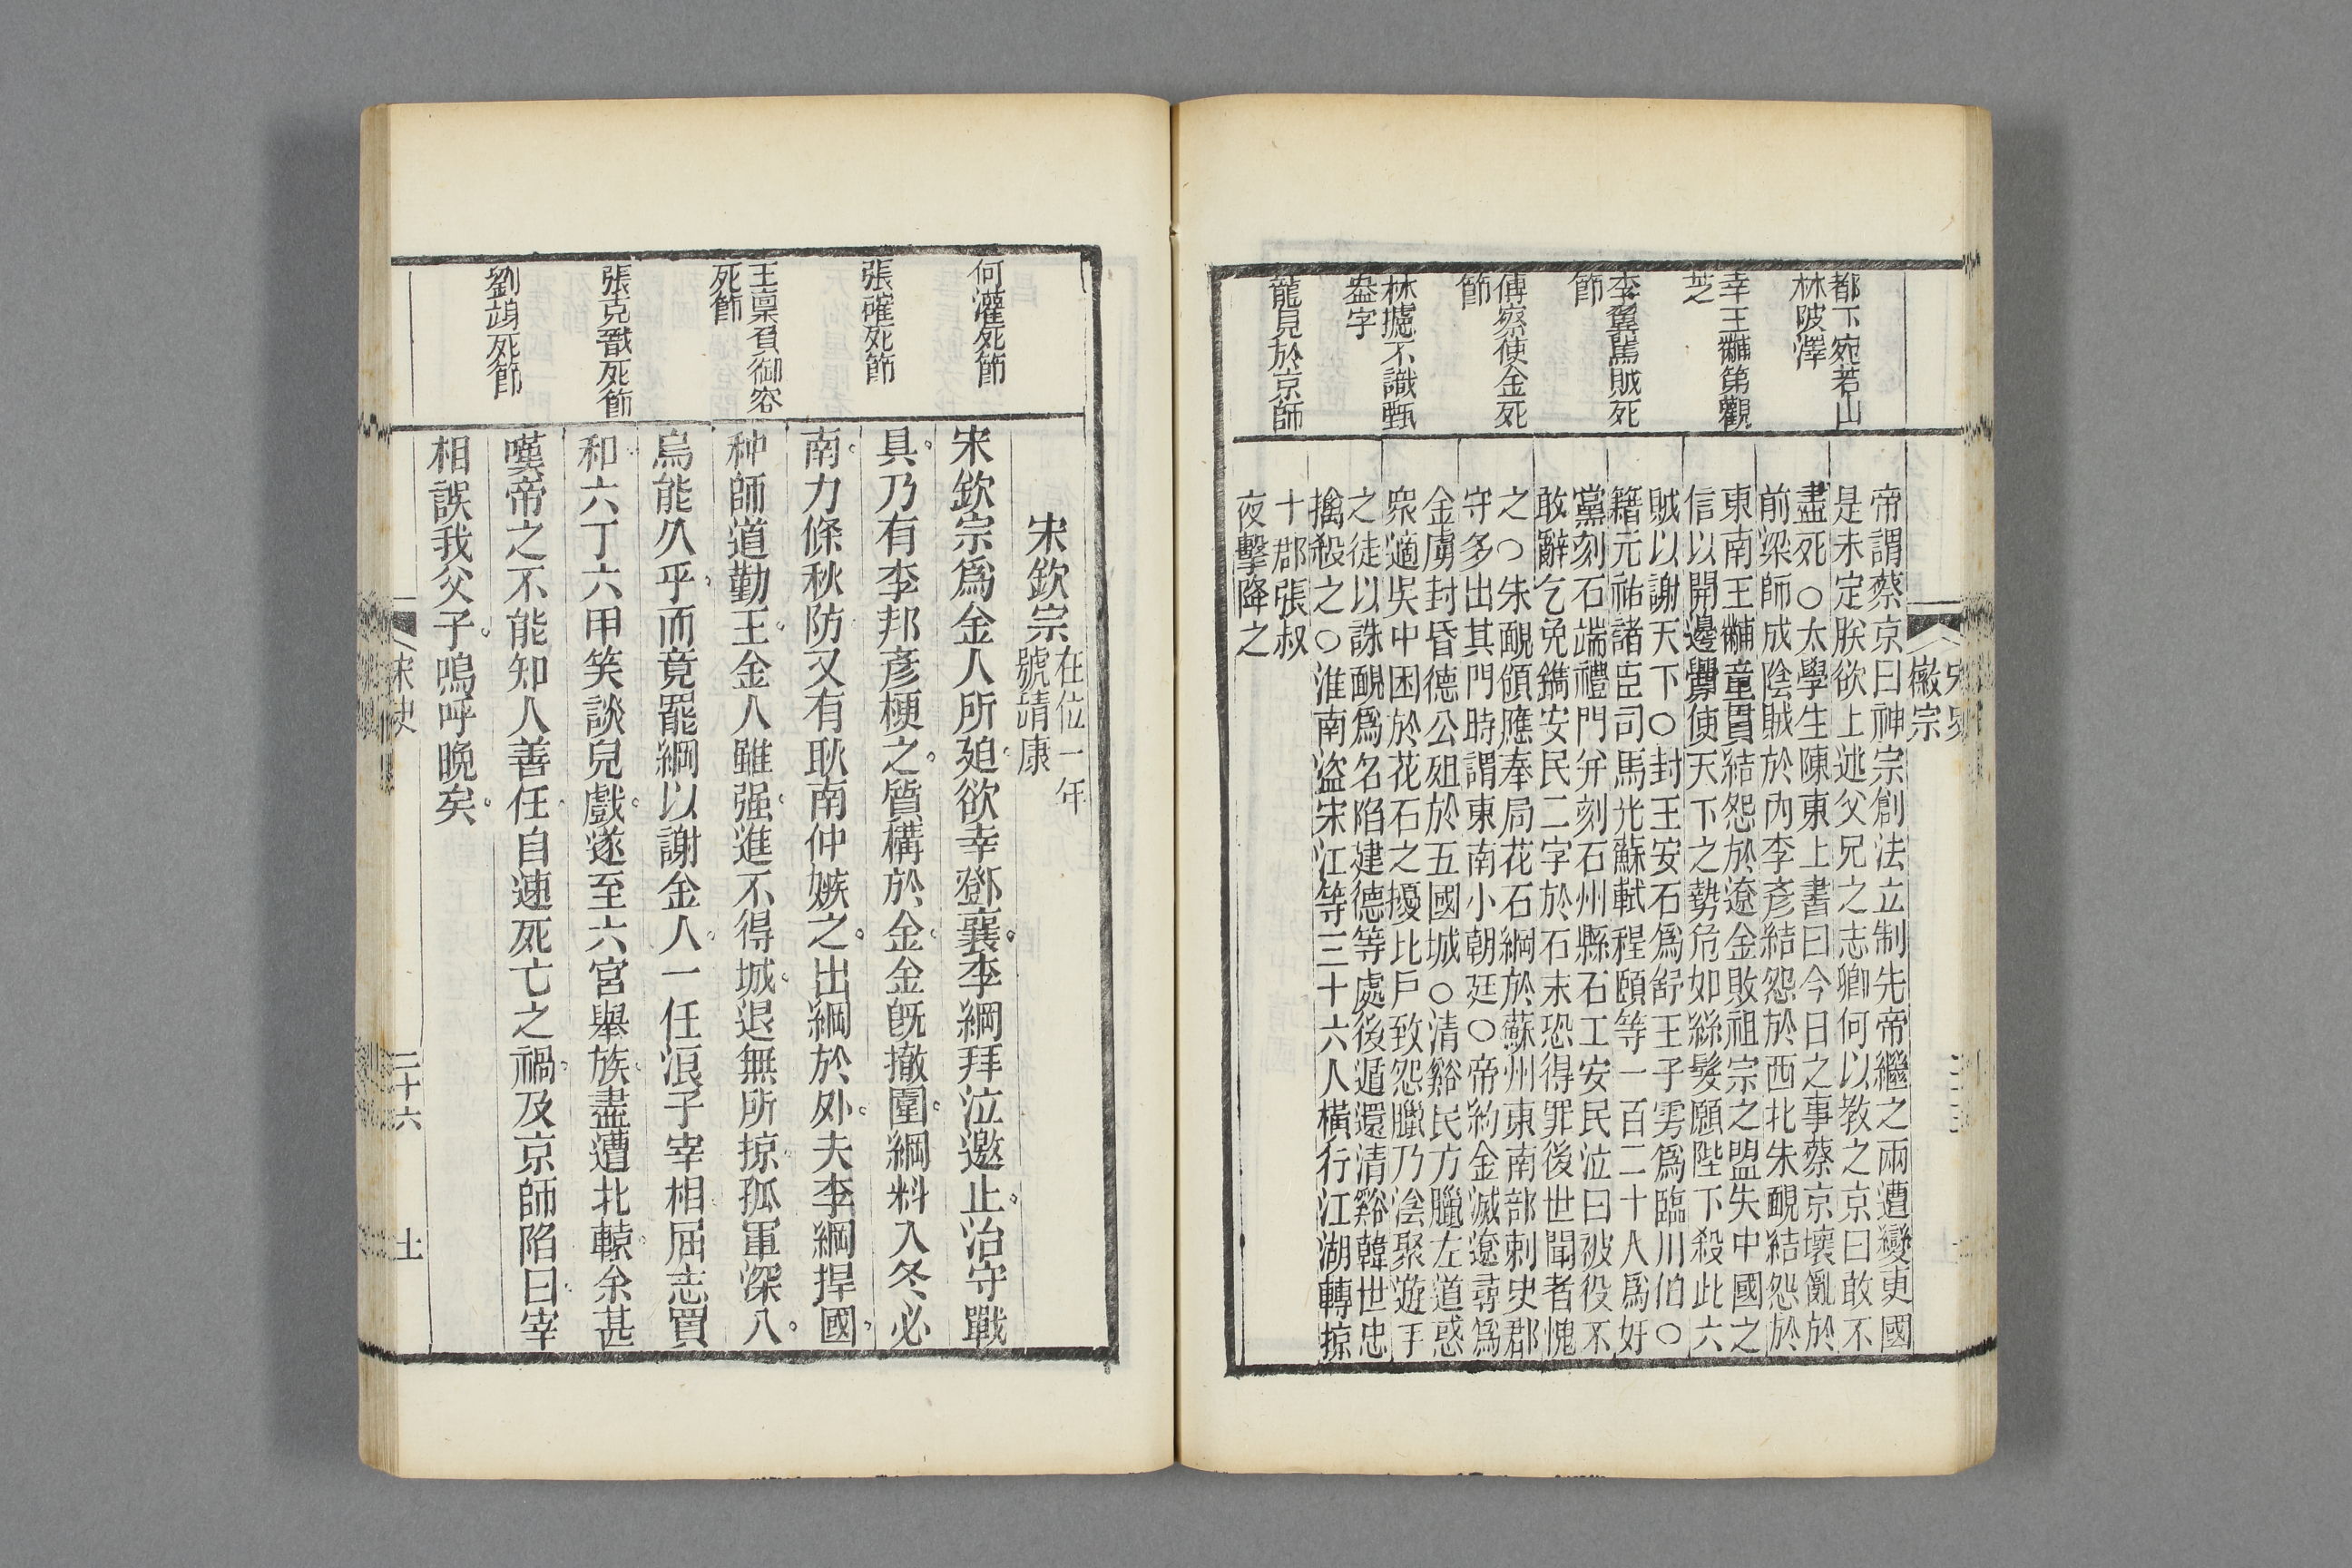 都下宛若山
林陂澤
幸王黼第觀
芝
李翼罵賊死
節
傅察使金死
節
林攄不識甄
盎字
龍見於京師
宋史
徽宗
帝謂蔡京曰神宗創法立制先帝繼之兩遭變更國
是未定朕欲上述父兄之志卿何以教之京曰敢不
盡死○太學生陳東上書曰今日之事蔡京壞亂於
前梁師成陰賊於內李彥結怨於西北朱勔結怨於
東南王黼童貫結怨於遼金敗祖宗之盟失中國之
信以開邊釁使天下之勢危如絲髮願陛下殺此六
賊以謝天下○封王安石爲舒王子雱爲臨川伯○
籍元祐諸臣司馬光蘇軾程頤等一百二十八爲奸
黨刻石端禮門并刻石州縣石工安民泣曰被役不
敢辭乞免鐫安民二字於石末恐得罪後世聞者愧
之○朱勔領應奉局花石綱於蘇州東南部刺史郡
守多出其門時謂東南小朝廷○帝約金滅遼尋爲
金虜封昏德公殂於五國城○清谿民方臘左道惑
衆適吳中困於花石之擾比戶致怨臘乃陰聚遊手
之徒以誅勔爲名陷建德等處後遁還清谿韓世忠
擒殺之○淮南盜宋江等三十六人橫行江湖轉掠
十郡張叔
夜擊降之
何灌死節
張確死節
王稟負御容
死節
張克戩死節
劉韐死節
宋欽宗
在位一年
號靖康
宋欽宗爲金人所廹欲幸鄧襄李綱拜泣邀止治守戰
具乃有李邦彥梗之質構於金金旣撤圍綱料入冬必
南力條秋防又有耿南仲嫉之出綱於外夫李綱捍國
种師道勤王金人雖强進不得城退無所掠孤軍深入
烏能久乎而竟罷綱以謝金人一任浪子宰相屈志買
和六丁六甲笑談兒戲遂至六宮舉族盡遭北轅余甚
嘆帝之不能知人善任自速死亡之禍及京師陷曰宰
相誤我父子嗚呼晩矣
宋史
二十六